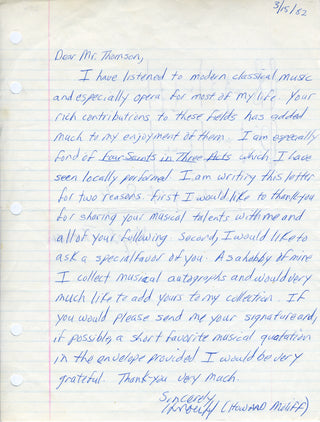 3/15/82
Dear Mr. Thomson,
I have listened to modern classical music
and especially opera for most of my life. Your
rich contributions to these fields has added
much to my enjoyment of them. I am especially
fond of Four Saints in Three Acts which I have
seen locally performed. I am writing this letter
for two reasons. First I would like to thank you
for sharing your musical talents with me and
all of your following. Second, I would like to
ask a special favor of you. As a hobby of mine
I collect musical autographs and would very
much like to add yours to my collection. If
you would please send me your signature and,
if possible, a short favorite musical quotation
in the envelope provided I would be very
grateful. Thank-you very much.
Sincerely,
(Howard